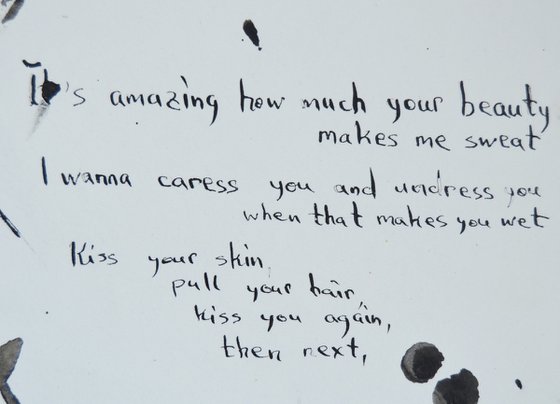 It's amazing how much your beauty
makes me sweat
I wanna caress you and undress you
when that makes you wet
Kiss your skin,
pull your hair,
kiss you again,
then next,